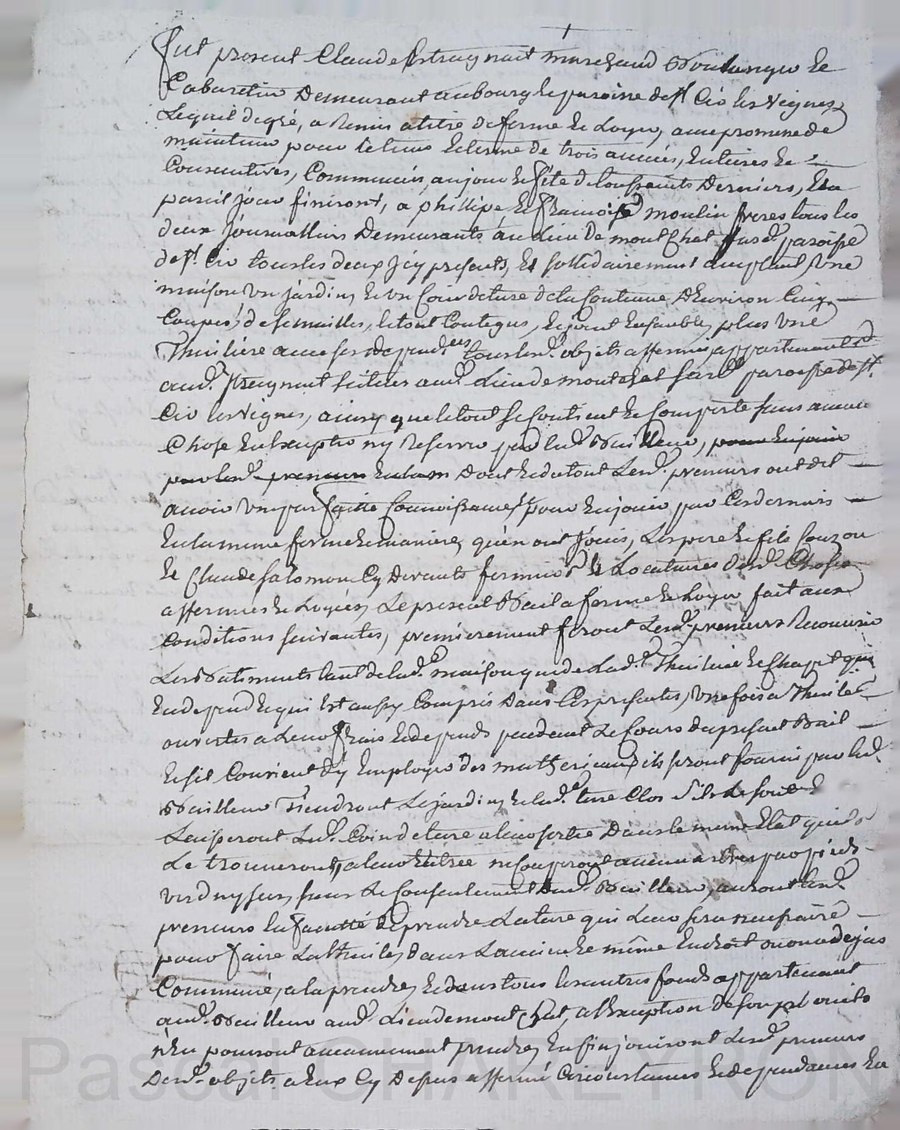 fut present Claude Estragnat marchand Boulanger Et
Cabaretier Demeurant au bourg Et paroisse de st Cir les Vignes,
Lequel de gré, a Remis a titre de ferme Et Loyer, avec promesse de
maintenir pour le tems Et terme de trois années, Entieres Et
Consecutives, Commencées, au jour Et fête de toussaints Derniers, Et a
pareil jour finiront, a phillipe Et françois moulin freres tous les
deux journalliers Demeurants au Lieu De mont Chat susd. paroisse
de st Cir tous les deux Icy presents, Et sollidairement acceptant Une
maison Un jardin, Et Un de terre de la Contenue D'environ Cinq
Coupes, de semailles, le tout Contegus, Et joint Ensemble, plus Une
Thuiliére avec ses dependces tous lesd. objets affermés appartenants
aud. Estragnat scitués aud. Lieu de montchat susd. paroisse de st.
Cir les Vignes, ainsy que le tout se Contient Et se Comporte sans aucune
Chose En Exception ny Reserve par led. Bailleur, pour En jouir
par lesd. preneurs Dont Et du tout Lesd. preneurs ont dit
avoir Une parfaitte Connoissance Et pour En jouir par Ces derniers
En la même forme Et maniere, qu'en ont jouis, Les pere Et fils Couzon
Et Claude salomon Cy Devants fermiers Et Locataires Desd. Choses
affermées Et Logées, Le present Bail a ferme Et Loyer fait aux
Conditions suivantes, premierement feront Lesd. preneurs Recouvrir
Les Batiments tant de lad. maison que de Lad. Thuiliere Et Chapit qui
En depend Et qui Est aussy Compris Dans Ces presentes, Une fois a Thuile
ouvertes a Leurs frais Et depends pendant Le Cours du present Bail
Et s'il Convient d'y Employer des matheriaux ils seront fournis par led.
Bailleur Tiendront Le jardin Et lad. terre Clos s'ils Le sont Et
Laisseront Led. Coin de terre a leur sortie Dans le même Etat qu'ils
Le trouveront, a leur Entrée ne Couperont aucuns arbres par pieds
Verd ny sec, sans Le Consentement dud. Bailleur, auront lesd.
preneurs la faculté de prendre La terre qui Leur sera necessaire
pour faire La thuile, dans La même Endroit ou on a deja
Commencé, a la prendre, Et dans tous les autres fonds appartenant
aud. Bailleur aud. Lieu de mont Chat, a l'Exception de
n'En pourront aucunement prendre, Enfin jouiront Lesd. preneurs
Desd. objets a Eux Cy Depus affermé Circonstances Et dependances En
Pascal CHAREYRON